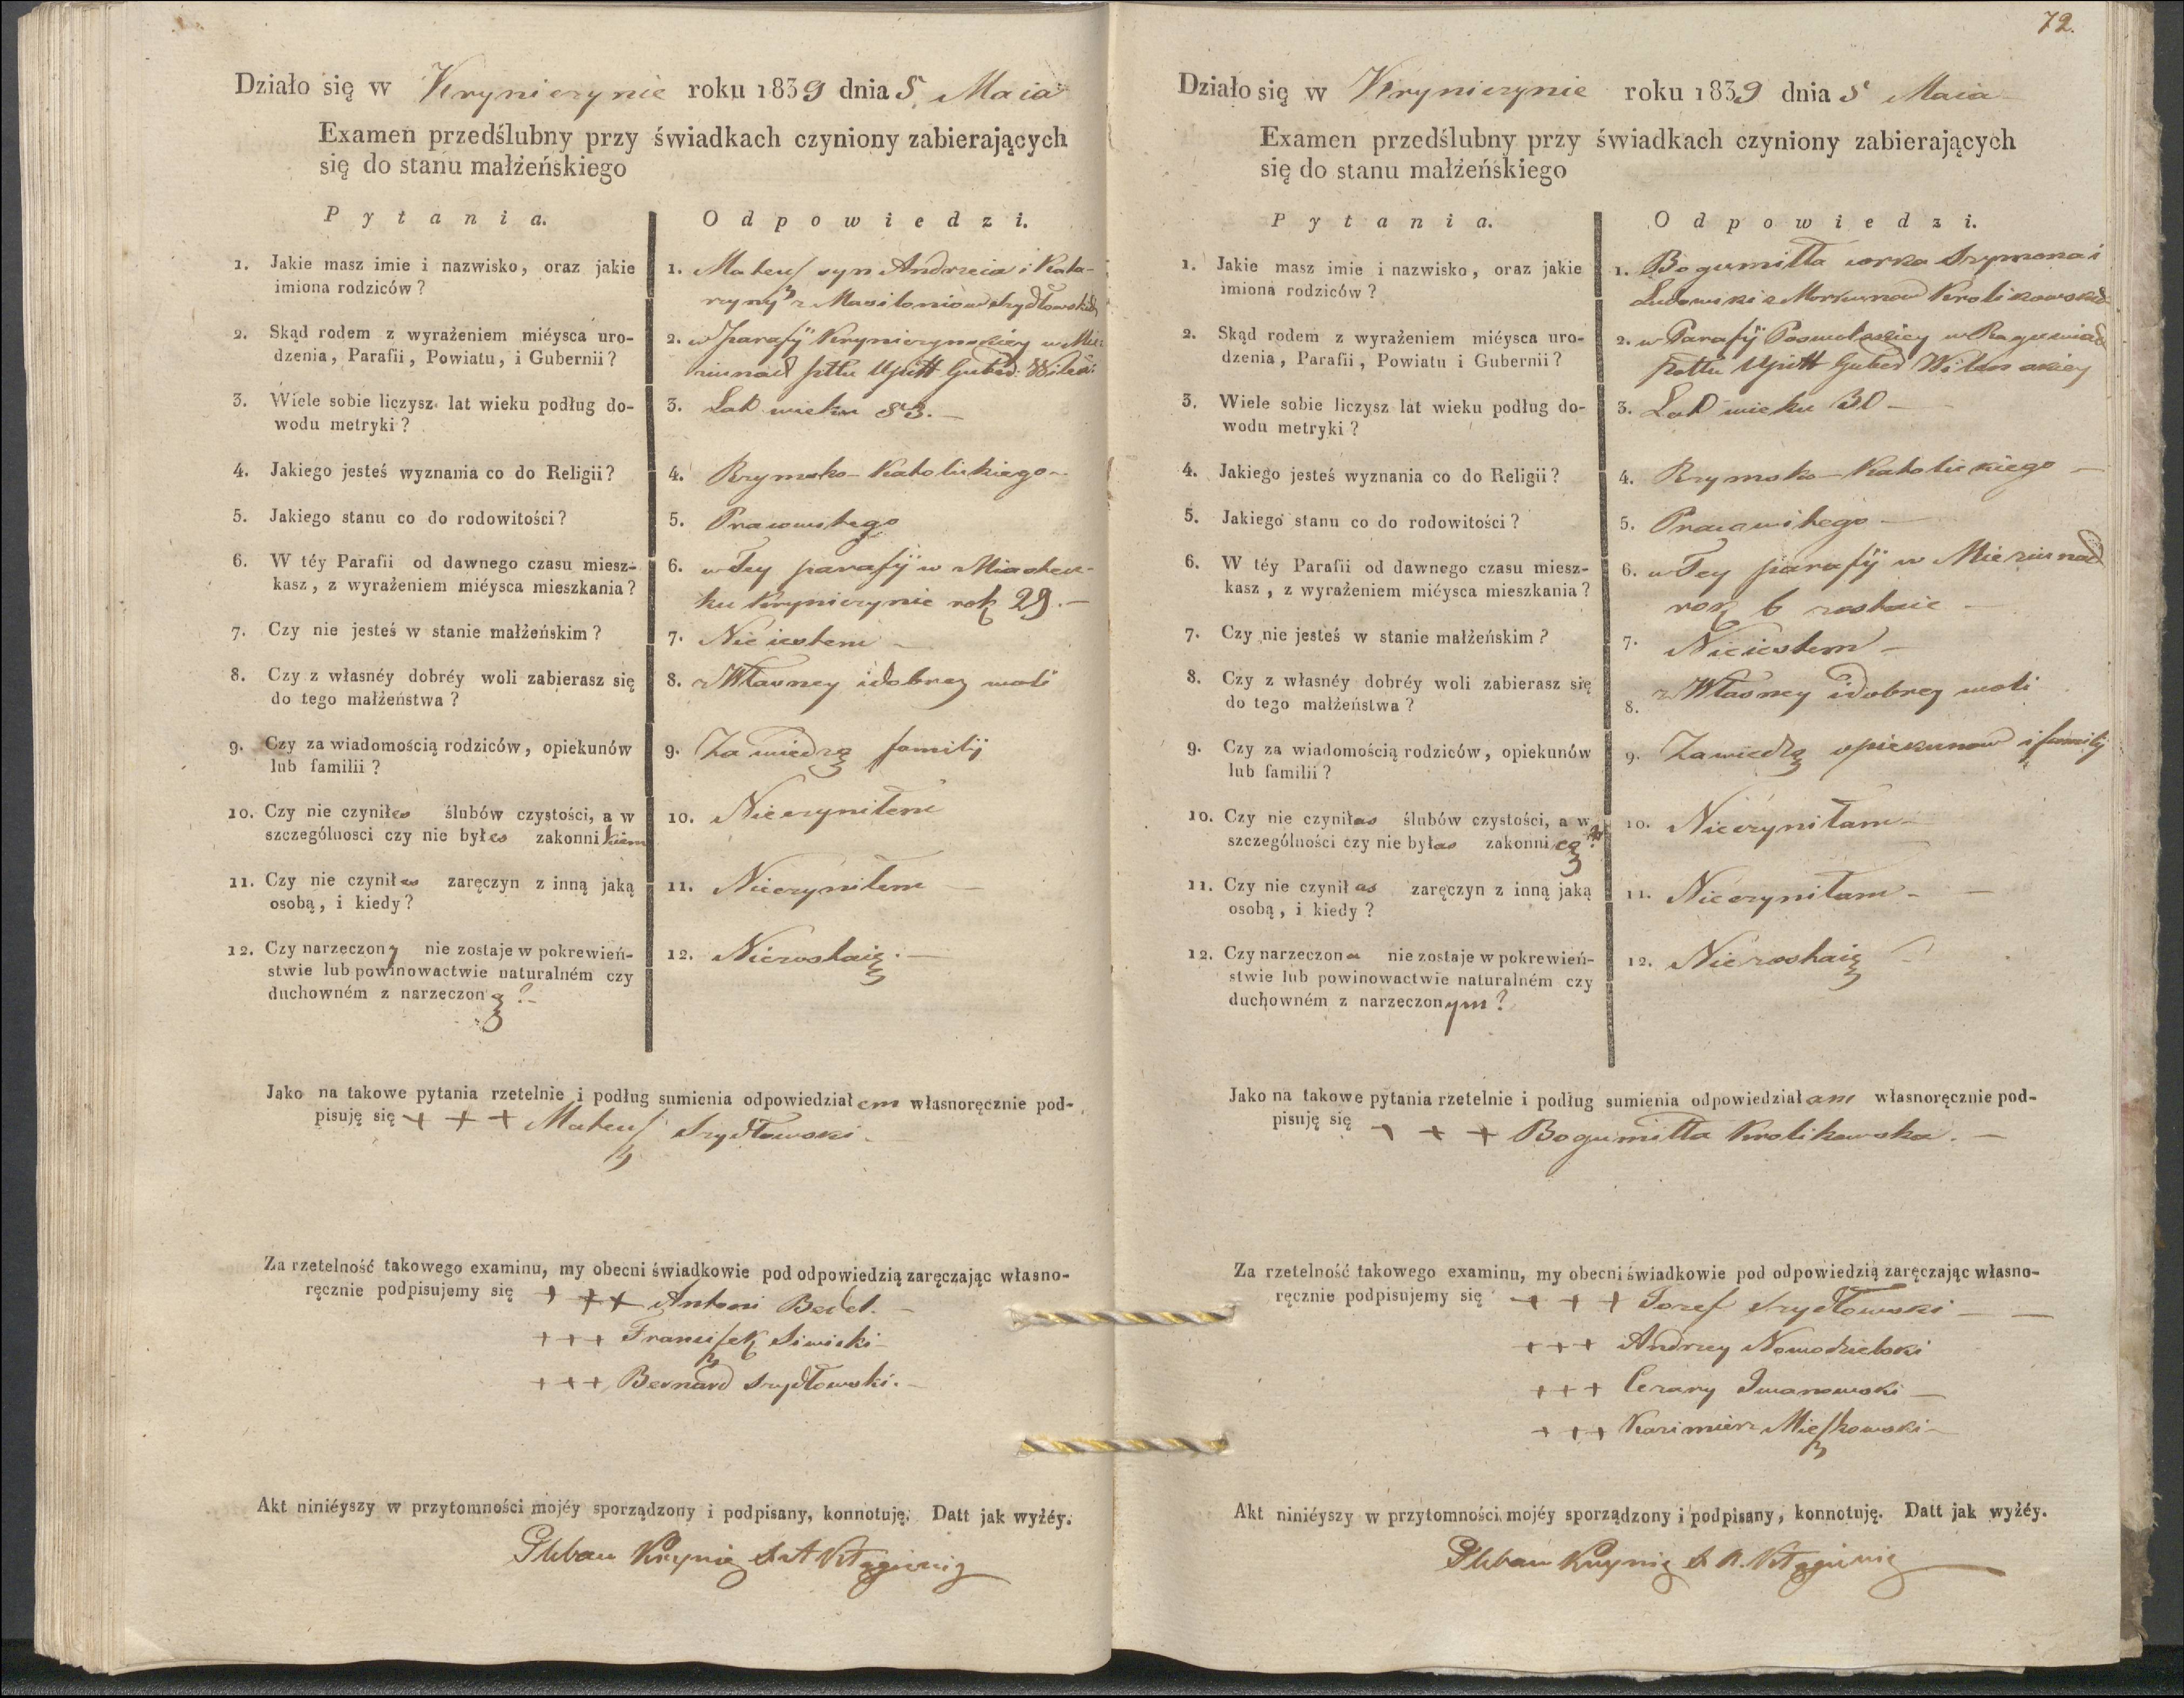 Działo się w Kryniczynie roku 1839 dnia 5 Maia
Examen przedślubny przy świadkach czyniony zabierających
się do stanu małżeńskiego
Pytania.
Odpowiedzi.
1. Jakie masz imie i nazwisko, oraz jakie
imiona rodziców?
1. Mateusz syn Andrzeia i Kata-
rzyny z Szydłowskich
2. Skąd rodem z wyrażeniem miéysca uro-
dzenia, Parafii, Powiatu, i Gubernii?
2. w parafij Kryniczynskiey w
pttu Upitt Guber:
3. Wiele sobie liczysz lat wieku podług do-
wodu metryki?
3. Lat wieku 53.—
4. Jakiego jesteś wyznania co do Religii?
4. Rzymsko-Katolickiego—
5. Jakiego stanu co do rodowitości?
5. Prawowitego
6. W téy Parafii od dawnego czasu miesz-
kasz, z wyrażeniem miéysca mieszkania?
6. w Tey parafij w Miastecz-
ku Kryniczynie rok 29.—
7. Czy nie jesteś w stanie małżeńskim?
7. Nie iestem —
8. Czy z własnéy dobréy woli zabierasz się
do tego małżeństwa?
8. z Własney i dobrey woli
9. Czy za wiadomością rodziców, opiekunów
lub familii?
9. Za wiedzą familij
10. Czy nie czyniłes ślubów czystości, a w
szczególnosci czy nie byłes zakonnikiem
10. Nieczyniłem
11. Czy nie czyniłes zaręczyn z inną jaką
osobą, i kiedy?
11. Nieczyniłem —
12. Czy narzeczony nie zostaje w pokrewień-
stwie lub powinowactwie naturalném czy
duchowném z narzeczoną?—
12. Niezostaię.—
Jako na takowe pytania rzetelnie i podług sumienia odpowiedziałem własnoręcznie pod-
pisuję się + + + Mateusz Szydłowski.
Za rzetelność takowego examinu, my obecni świadkowie pod odpowiedzią zaręczając własno-
ręcznie podpisujemy się + + + Antoni
+ + + Franciszek Siwicki—
+ + + Bernard Szydłowski.—
Akt niniéyszy w przytomności mojéy sporządzony i podpisany, konnotuję. Datt jak wyżéy.
Pleban
72.
Działo się w Kryniczynie roku 1839 dnia 5 Maia
Examen przedślubny przy świadkach czyniony zabierających
się do stanu małżeńskiego
Pytania.
Odpowiedzi.
1. Jakie masz imie i nazwisko, oraz jakie
imiona rodziców?
1. Bogumiłła corka Szymona i
Ludowiki z Krolikowskich
2. Skąd rodem z wyrażeniem miéysca uro-
dzenia, Parafii, Powiatu i Gubernii?
2. w Parafij w
pottu Upitt Guber Wilenskiey
3. Wiele sobie liczysz lat wieku podług do-
wodu metryki?
3. Lat wieku 30—
4. Jakiego jesteś wyznania co do Religii?
4. Rzymsko-Katolickiego —
5. Jakiego stanu co do rodowitości?
5. Prawowitego—
6. W téy Parafii od dawnego czasu miesz-
kasz, z wyrażeniem miéysca mieszkania?
6. w Tey parafij w
rok 6 zostaie —
7. Czy nie jesteś w stanie małżeńskim?
7. Nieiestem —
8. Czy z własnéy dobréy woli zabierasz się
do tego małżeństwa?
8. z Własney i dobrey woli
9. Czy za wiadomością rodziców, opiekunów
lub familii?
9. Za wiedzą opiekunow i familij
10. Czy nie czyniłas ślubów czystości, a w
szczególności czy nie byłas zakonnicą?
10. Nieczyniłam—
11. Czy nie czyniłas zaręczyn z inną jaką
osobą, i kiedy?
11. Nieczyniłam— —
12. Czy narzeczona nie zostaje w pokrewień-
stwie lub powinowactwie naturalném czy
duchowném z narzeczonym?
12. Niezostaię —
Jako na takowe pytania rzetelnie i podług sumienia odpowiedziałam własnoręcznie pod-
pisuję się + + + Bogumiłła Krolikowska.—
Za rzetelność takowego examinu, my obecni świadkowie pod odpowiedzią zaręczając własno-
ręcznie podpisujemy się + + + Jozef Szydłowski —
+ + + Andrzey Nowodzielski
+ + + Cezary Iwanowski —
+ + + Kazimierz Mieszkowski—
Akt niniéyszy w przytomności mojéy sporządzony i podpisany, konnotuję. Datt jak wyżéy.
Pleban